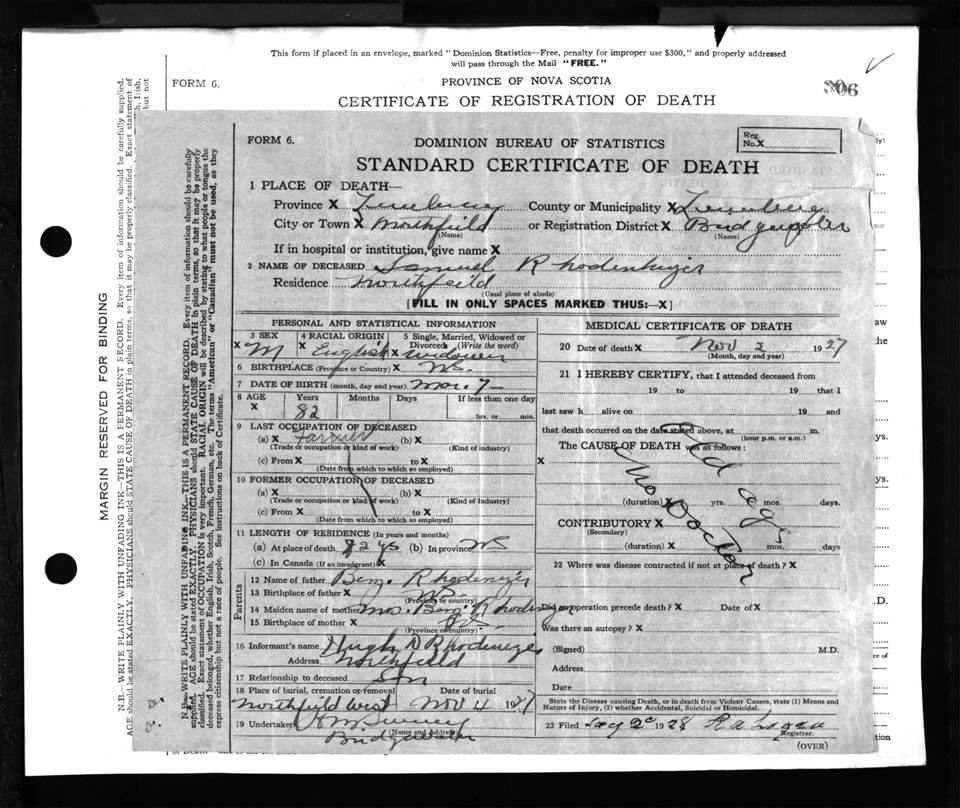 This form if placed in an envelope, marked "Dominion Statistics—Free, penalty for improper use $300," and properly addressed
will pass through the Mail "FREE."
FORM 6.
PROVINCE OF NOVA SCOTIA
306
CERTIFICATE OF REGISTRATION OF DEATH
MARGIN RESERVED FOR BINDING
N.B.—WRITE PLAINLY WITH UNFADING INK—THIS IS A PERMANENT RECORD. Every item of information should be carefully supplied.
AGE should be stated EXACTLY. PHYSICIANS should STATE CAUSE OF DEATH in plain terms, so that it may be properly classified. Exact statement of
N.B.—WRITE PLAINLY WITH UNFADING INK—THIS IS A PERMANENT RECORD. Every item of information should be carefully
supplied. AGE should be stated EXACTLY. PHYSICIANS should STATE CAUSE OF DEATH in plain terms, so that it may be properly
classified. Exact statement of OCCUPATION is very important. RACIAL ORIGIN will be described by stating to what people or tongue the
deceased belonged, whether English, Irish, Scotch, French, German, etc. The terms "American" or "Canadian" must not be used, as they
express citizenship but not a race of people. See instructions on back of Certificate.
FORM 6.
DOMINION BUREAU OF STATISTICS
Reg. No. X
STANDARD CERTIFICATE OF DEATH
1 PLACE OF DEATH—
Province X County or Municipality X
City or Town X Northfield or Registration District X
(Name) (Name)
If in hospital or institution, give name X
2 NAME OF DECEASED Samuel Rhodenizer
Residence Northfeild
(Usual place of abode)
[FILL IN ONLY SPACES MARKED THUS:—X]
PERSONAL AND STATISTICAL INFORMATION
3 SEX 4 RACIAL ORIGIN 5 Single, Married, Widowed or Divorced (Write the word)
X M X English X widower
6 BIRTHPLACE (Province or Country) X NS.
7 DATE OF BIRTH (month, day and year) Mar. 7—
8 AGE Years Months Days If less than one day
X 82 hrs. or min.
9 LAST OCCUPATION OF DECEASED
(a) X Farmer (b) X
(Trade or occupation or kind of work) (Kind of industry)
(c) From X to X
(Date from which to which so employed)
10 FORMER OCCUPATION OF DECEASED
(a) X (b) X
(Trade or occupation or kind of work) (Kind of Industry)
(c) From X to X
(Date from which to which so employed)
11 LENGTH OF RESIDENCE (In years and months)
(a) At place of death 82 ys (b) In province NS
(c) In Canada (If an immigrant) X
Parents
12 Name of father Benj. Rhodenizer
13 Birthplace of father X NS.
(Province or country)
14 Maiden name of mother Mrs. Benj. Rhodenizer
15 Birthplace of mother X NS.
(Province or country)
16 Informant's name Hugh D Rhodenizer
Address Northfeild
17 Relationship to deceased Son
18 Place of burial, cremation or removal Date of burial
Northfield West Nov 4 1927
19 Undertaker
(Name and Address)
Bridgewater
MEDICAL CERTIFICATE OF DEATH
20 Date of death X Nov 2 1927
(Month, day and year)
21 I HEREBY CERTIFY, that I attended deceased from
19 to 19 that I
last saw h alive on 19 and
that death occurred on the date stated above, at m.
(hour p.m. or a.m.)
The CAUSE OF DEATH was as follows:
X
Old age
No Doctor
(duration) X yrs. mos. days.
CONTRIBUTORY X
(Secondary)
(duration) X mos. days
22 Where was disease contracted if not at place of death? X
Did an operation precede death? X Date of X
Was there an autopsy? X
(Signed) M.D.
Address
Date
State the Disease causing Death, or in death from Violent Causes, state (1) Means
and Nature of Injury, (2) whether Accidental, Suicidal or Homicidal.
23 Filed 1928
Registrar.
(OVER)